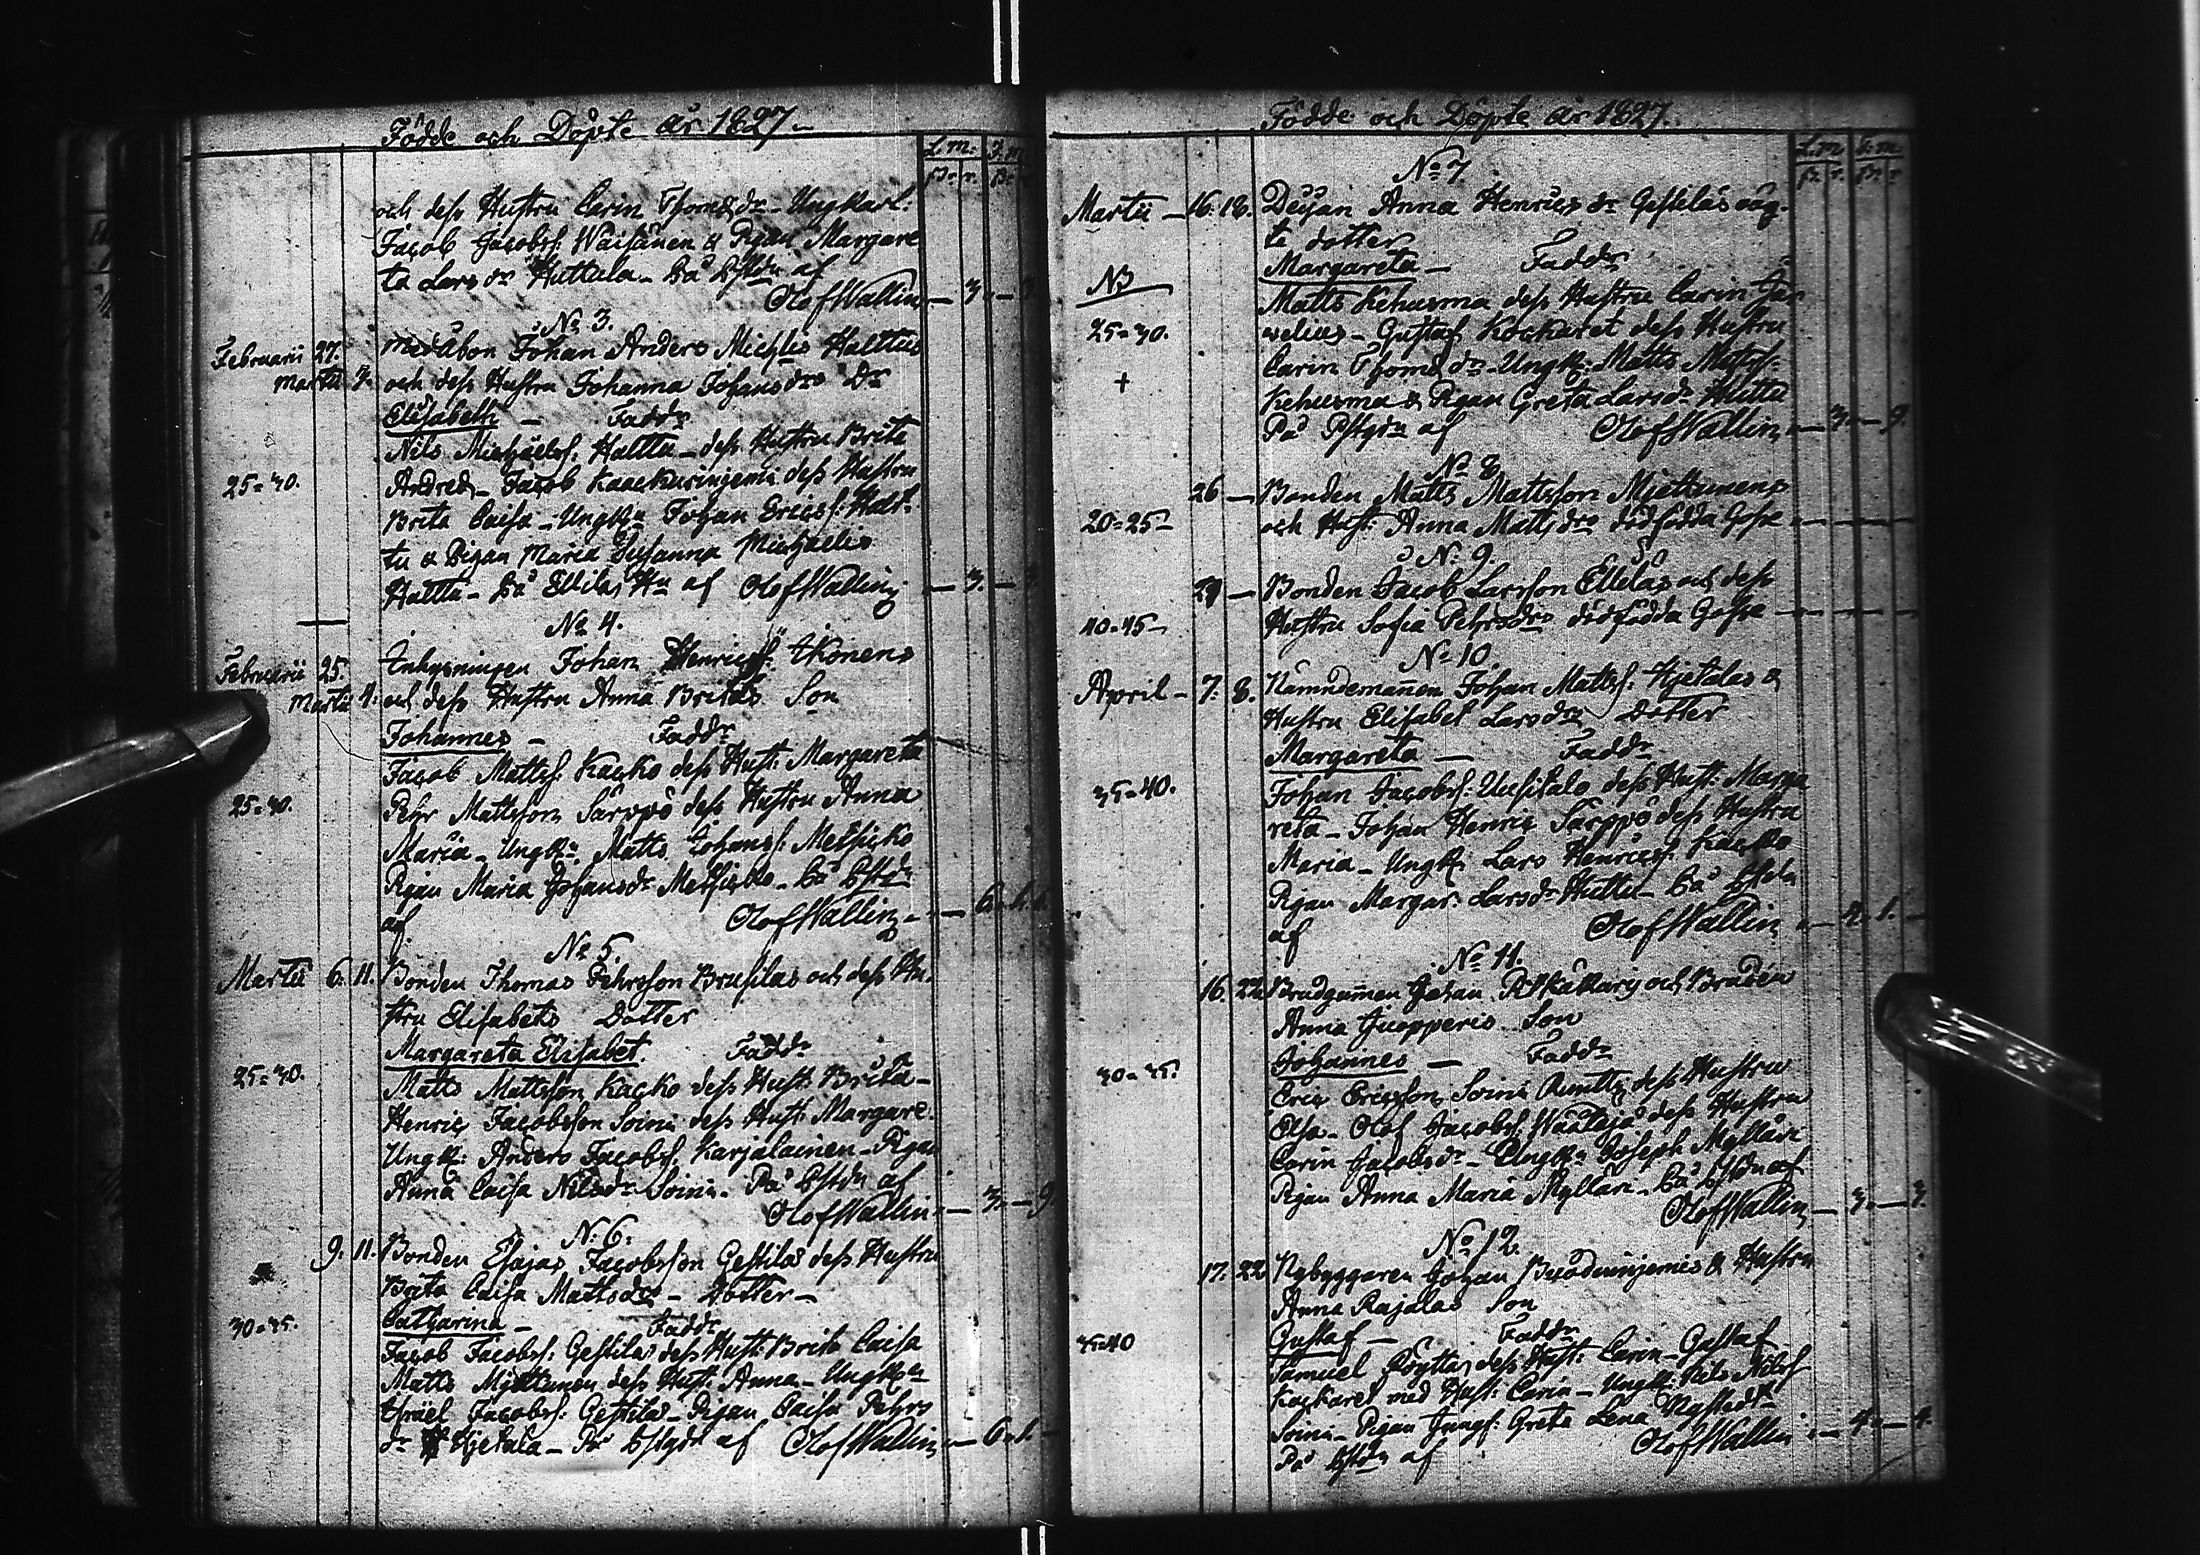 Födde och Döpte år 1827.
L.m. S.m.
och dess Hustru Carin Thomæ dr. Ungkarl:
Jacob Jacobss: Waisänen & Pigan Margare
ta Lars dr Huttula - på Pstdn af
Olof Wallin — 3. —
No 3.
Februarii 27. Medåbon Johan Anders Michls Halttus
Martii och dess Hustru Johanna Johansdrs Dr
Elisabeth — Faddr
Nils Michaelss. Halttu - dess Hustru Brita
25=30. Andreæ - Jacob dess Hustru
Brita Caisa - Ungkn Johan Ericss: Halt-
tu & Pigan Maria Susanna Michaelis
Halttu - på Ellilä Hn af Olof Wallin — 3. —
No 4.
Februarii 25. Inhysningen Johan Henricss: Ikonens
Martii 4. och dess Hustru Anna Britas Son
Johannes — Faddr
Jacob Mattss: Kacko dess Hust: Margareta
25=30. Pehr Mattsson Särppö dess Hustru Anna
Maria - Ungkn. Matts Johanss: Metsicko
Pigan Maria Johansdr Metsicko - på Pstdn
af Olof Wallin — 6.
No 5.
Martii 6. 11. Bonden Thomas Pehrsson Brusilas och dess Hu-
stru Elisabets Dotter
Margareta Elisabet. Faddr
25=30. Matts Mattsson Kacko dess Hust: Brita -
Henric Jacobsson Soini dess Hust: Margare.
Ungk: Anders Jacobss Karjalainen - Pigan
Anna Caisa Nilsdr Soini. På Pstdn af
Olof Wallin — 3. — 9
No 6.
9. 11. Bonden Esajas Jacobsson Gestilas dess Hustru
Brita Caisa Mattsdrs - Dotter —
Catharina — Faddr
30=35. Jacob Jacobss: Gestilas dess Hust: Brita Caisa
Matts Mjettunen dess Hust: Anna - Ungkn
Israel Jacobss: Gestilas - Pigan Caisa Pehrs
dr Hjetala - På Pstgdn af Olof Wallin — 6.
Födde och Döpte år 1827.
L.m. S.m.
No 7
Martii — 16. 18. Deijan Anna Henrics dr Gestiläs oäg-
ta dotter
Margareta — Faddr
NB Matts Kehusma dess Hustru Carin
25=30. Gustaf Kockaret dess Hustru
Carin Thomæ dr - Ungk: Matts Mattss:
+ Kehusma & Pigan Greta Larsdr Huttu
På Pstgdn af Olof Wallin — 3. — 9.
No 8
26 — Bonden Matts Mattsson Mjettunens
20=25 — och Hust: Anna Mattsdrs dödfödda Gosse —
No 9.
29 — Bonden Jacob Larsson Ellilas och dess
40=45 — Hustru Sofia Pehrsdrs dödfödda Gosse —
No 10.
April — 7. 8. Nämndemannen Johan Mattss: Hjetalas &
Hustru Elisabet Larsdrs Dotter
Margareta — Faddr
35=40. Johan Jacobss: Uusitalo dess Hust: Marga
reta - Johan Henric Särppö dess Hustru
Maria - Ungk: Lars Henricss: Kacko
Pigan Margar: Larsdr Huttu - på Pstdn
af Olof Wallin — 4. 1. —
No 11.
16. 22 Brudgummen Johan och Bruden
Anna Juopperis Son
Johannes — Faddr
30=35. Eric Ericsson Soini dess Hustru
Elsa - Olof Jacobss: Wäätäjä dess Hustru
Carin Jacobsdr - Ungkn Joseph Mylläri
Pigan Anna Maria Mylläri - på Pstdn af
Olof Wallin — 3. — 3.
No 12.
17. 22 Nybyggaren Johan & Hustru
Anna Rajalas Son
35=40 Gustaf — Faddr
Samuel dess Hust: Carin - Gustaf
Kockaret med Hust: Carin - Ungk: Nils Nilss
Soini - Pigan Jungf: Greta Lena
På Pstdn af Olof Wallin — 4. — 4.